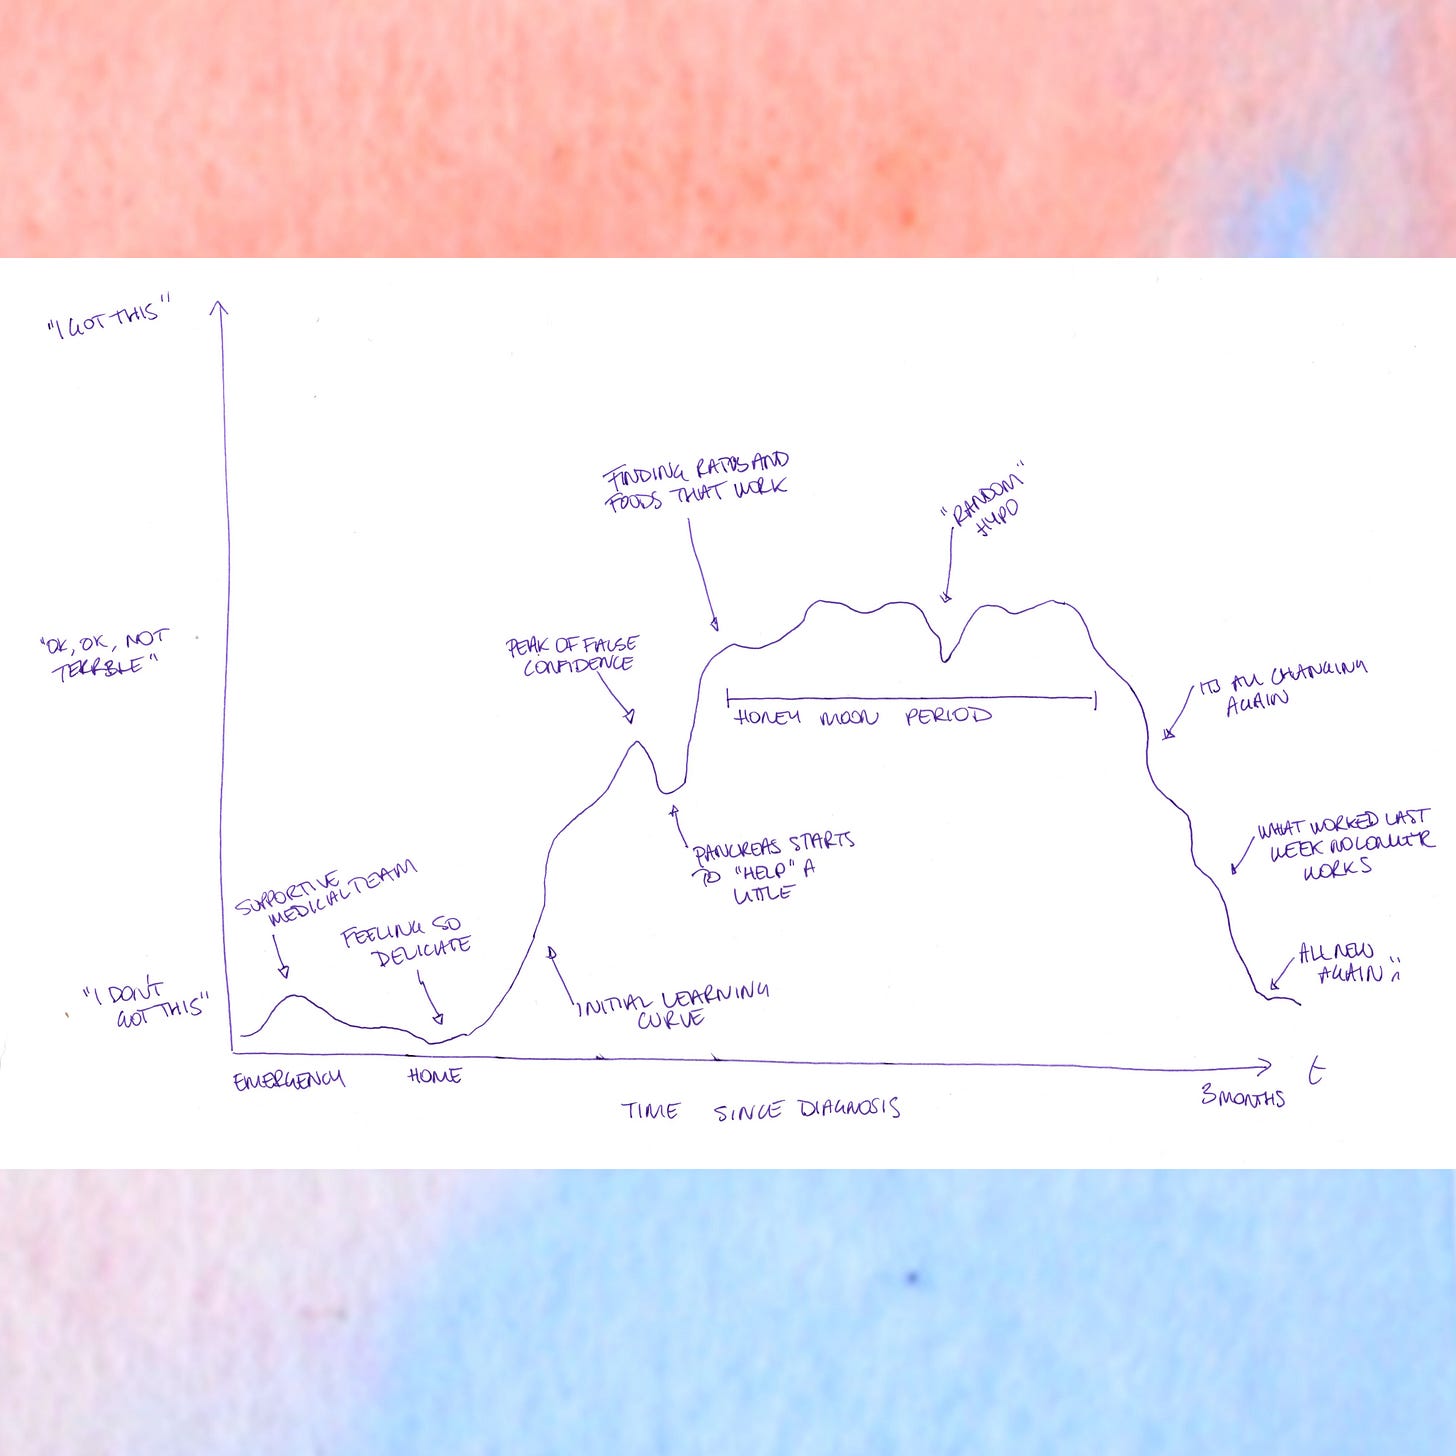 "I GOT THIS"
FINDING RATIOS AND
FOODS THAT WORK
"RANDOM"
HYPO
"OK, OK, NOT
TERRBLE"
PEAK OF FALSE
CONFIDENCE
ITS ALL CHANGING
AGAIN
HONEY MOON PERIOD
PANCREAS STARTS
TO "HELP" A
LITTLE
WHAT WORKED LAST
WEEK NO LONGER
WORKS
SUPPORTIVE
MEDICIAL TEAM
FEELING SO
DELICIATE
"I DON'T
GOT THIS"
INITIAL LEARNING
CURVE
ALL NEW
AGAIN
EMERGENCY
HOME
3 MONTHS
t
TIME SINCE DIAGNOSIS